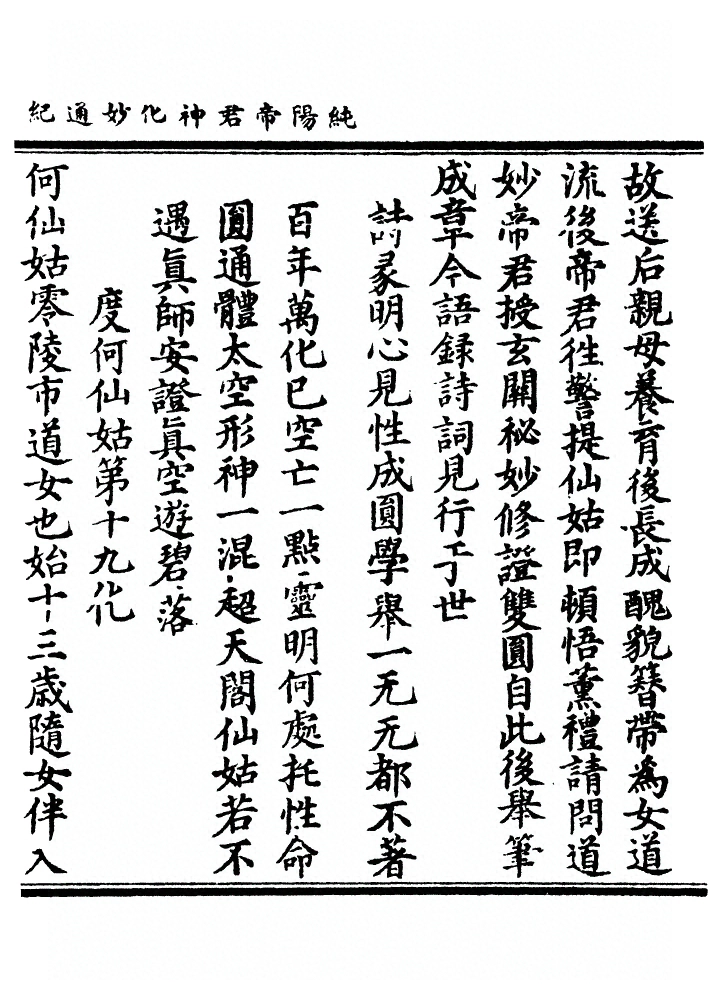 純陽帝君神化妙通紀
故送后親母養育後長成醜貌簪帶為女道
流後帝君徃警提仙姑即頓悟薰禮請問道
妙帝君授玄關秘妙修證雙圓自此後舉筆
成章今語録詩詞見行于世
詩彖明心見性成圓學舉一无无都不著
百年萬化巳空亡一點靈明何處托性命
圓通體太空形神一混超天閣仙姑若不
遇眞師安證眞空遊碧落
度何仙姑第十九化
何仙姑零陵市道女也始十三歲隨女伴入